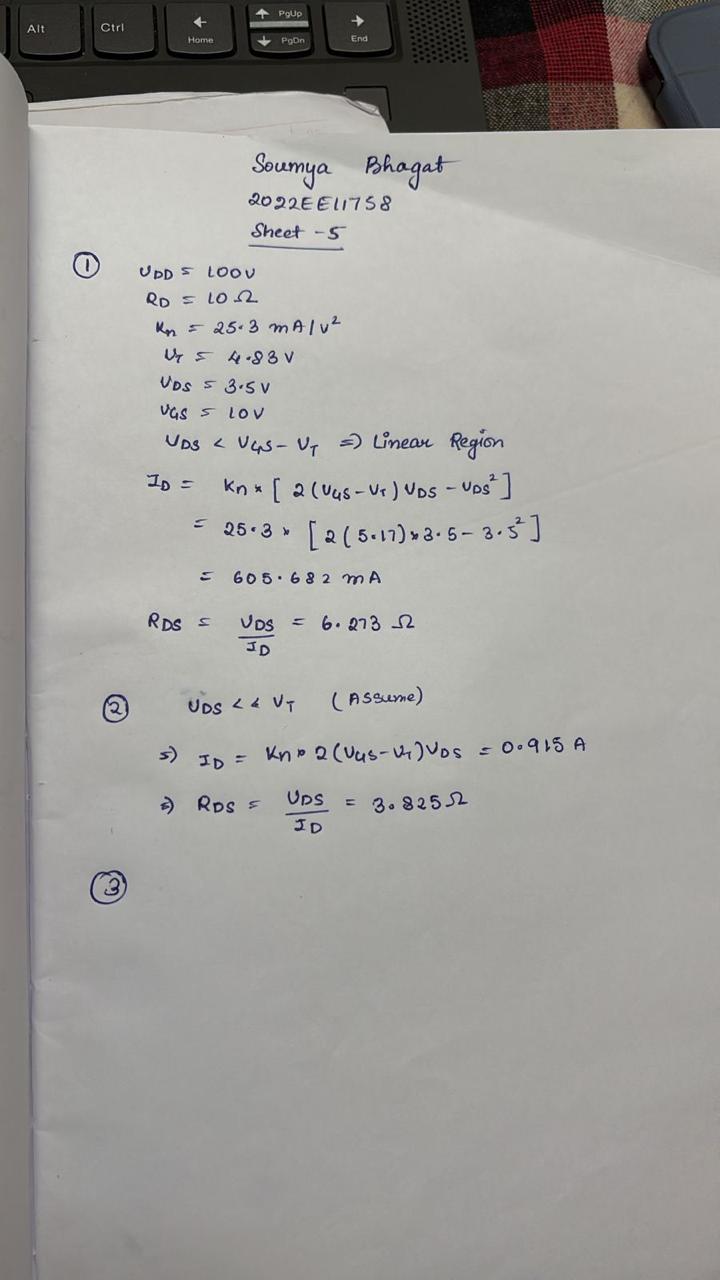 Alt Ctrl ← Home ↑ PgUp ↓ PgDn → End
Soumya Bhagat
2022EE11758
Sheet -5
① VDD = 100V
RD = 10 Ω
Kn = 25.3 mA/V²
VT = 4.83 V
VDS = 3.5V
VGS = 10V
VDS < VGS - VT ⇒ Linear Region
ID = Kn * [ 2(VGS - VT) VDS - VDS² ]
= 25.3 * [ 2(5.17)*3.5 - 3.5² ]
= 605.682 mA
RDS = VDS/ID = 6.273 Ω
② VDS << VT (Assume)
⇒) ID = Kn * 2(VGS-VT)VDS = 0.915 A
⇒) RDS = VDS/ID = 3.825Ω
③